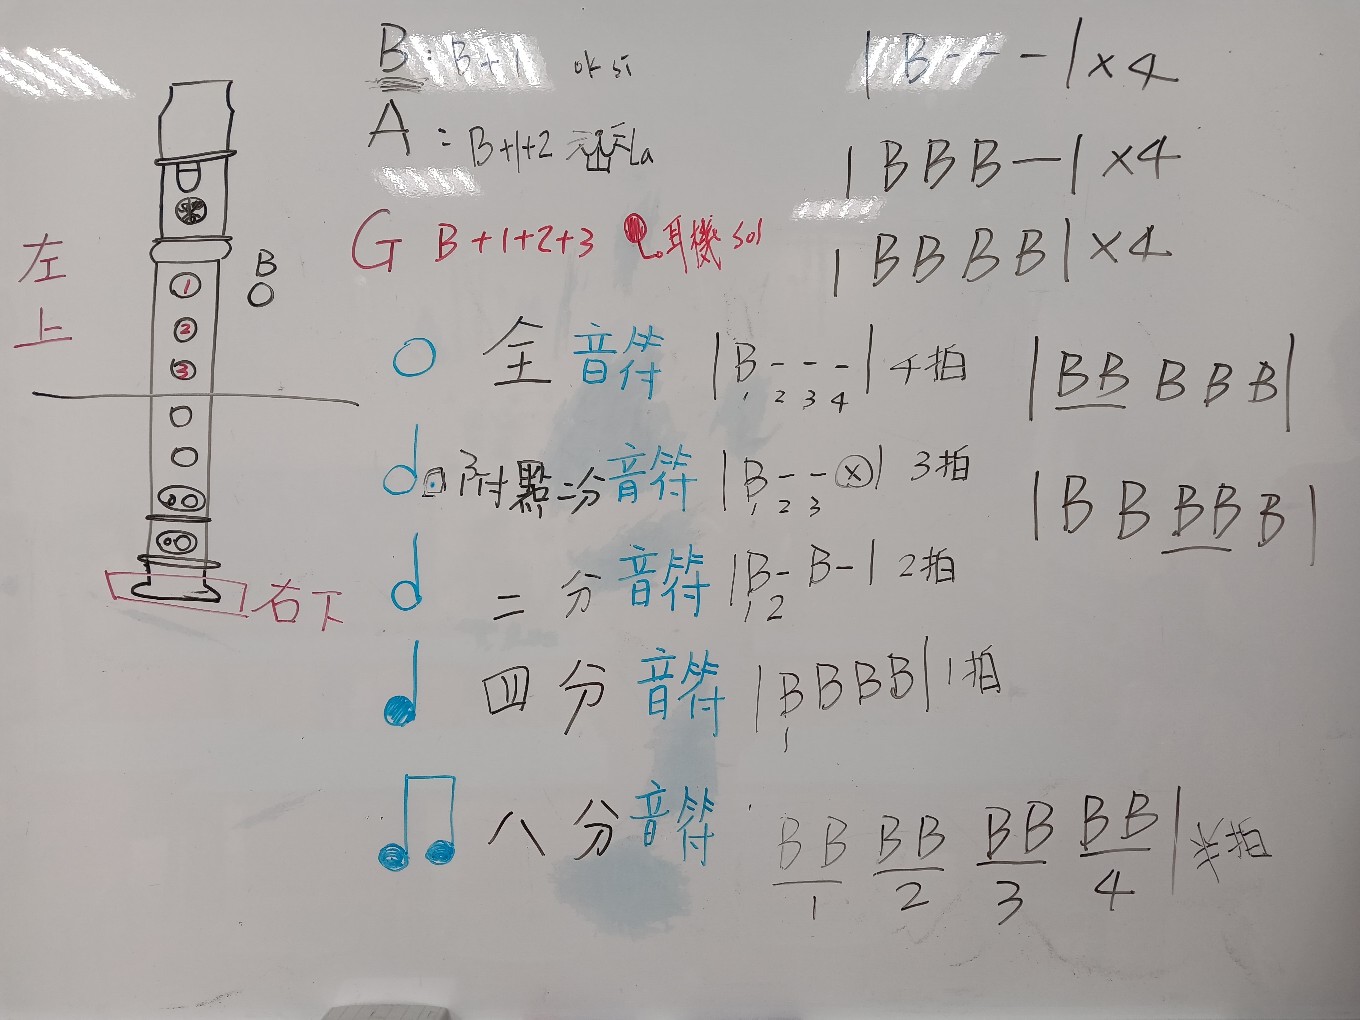 B : B+1 ok si
A : B+1+2 la
G B+1+2+3 耳機 sol
左上
B
1
2
3
右下
全音符 |B - - -| 4拍
1 2 3 4
附點二分音符 |B - - ⓧ| 3拍
1 2 3
二分音符 |B - B -| 2拍
1 2
四分音符 |B B B B| 1拍
1
八分音符 BB BB BB BB| 半拍
1 2 3 4
|B - - -| ×4
|B B B —| ×4
|B B B B| ×4
|BB B B B|
|B B BB B|